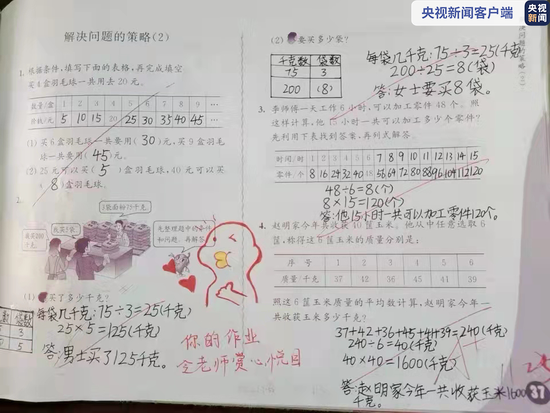 央视新闻客户端
解决问题的策略(2)
1. 根据条件,填写下面的表格,再完成填空
买4盒羽毛球一共用去20元。
数量/盒 1 2 3 4 5 6 7 8 9 …
价钱/元 5 10 15 20 25 30 35 40 45 …
(1) 买6盒羽毛球一共要用(30)元,买9盒羽毛
球一共要用(45)元。
(2) 25元可以买(5)盒羽毛球,40元可以买
(8)盒羽毛球。
2.
3数面粉75千克。
我买5袋
我买200千克
先整理题中的条件
和问题,再解答
(1) 买了多少千克?
每袋几千克:75÷3=25(千克)
25×5=125(千克)
答:男士买了125千克。
袋数
3
5
你的作业
令老师赏心悦目
(2) 要买多少袋?
千克数 袋数
75 3
200 (8)
每袋几千克:75÷3=25(千克)
200÷25=8(袋)
答:女士要买8袋。
3. 李师傅一天工作6小时,可以加工零件48个。照
这样计算,他15小时一共可以加工多少个零件?
先利用下表找到答案,再列式解答。
时间/时 1 2 3 4 5 6 7 8 9 10 11 12 13 14 15
零件/个 8 16 24 32 40 48 56 64 72 80 88 96 104 112 120
48÷6=8(个)
8×15=120(个)
答:他15小时一共可以加工零件120个。
4. 赵明家今年共收获40筐玉米。他从中任意选取6
筐,称得这6筐玉米的质量分别是:
序号 1 2 3 4 5 6
质量/千克 37 42 36 45 41 39
照这6筐玉米质量的平均数计算,赵明家今年一
共收获玉米多少千克?
37+42+36+45+41+39=240(千克)
240÷6=40(千克)
40×40=1600(千克)
答:赵明家今年一共收获玉米1600
37